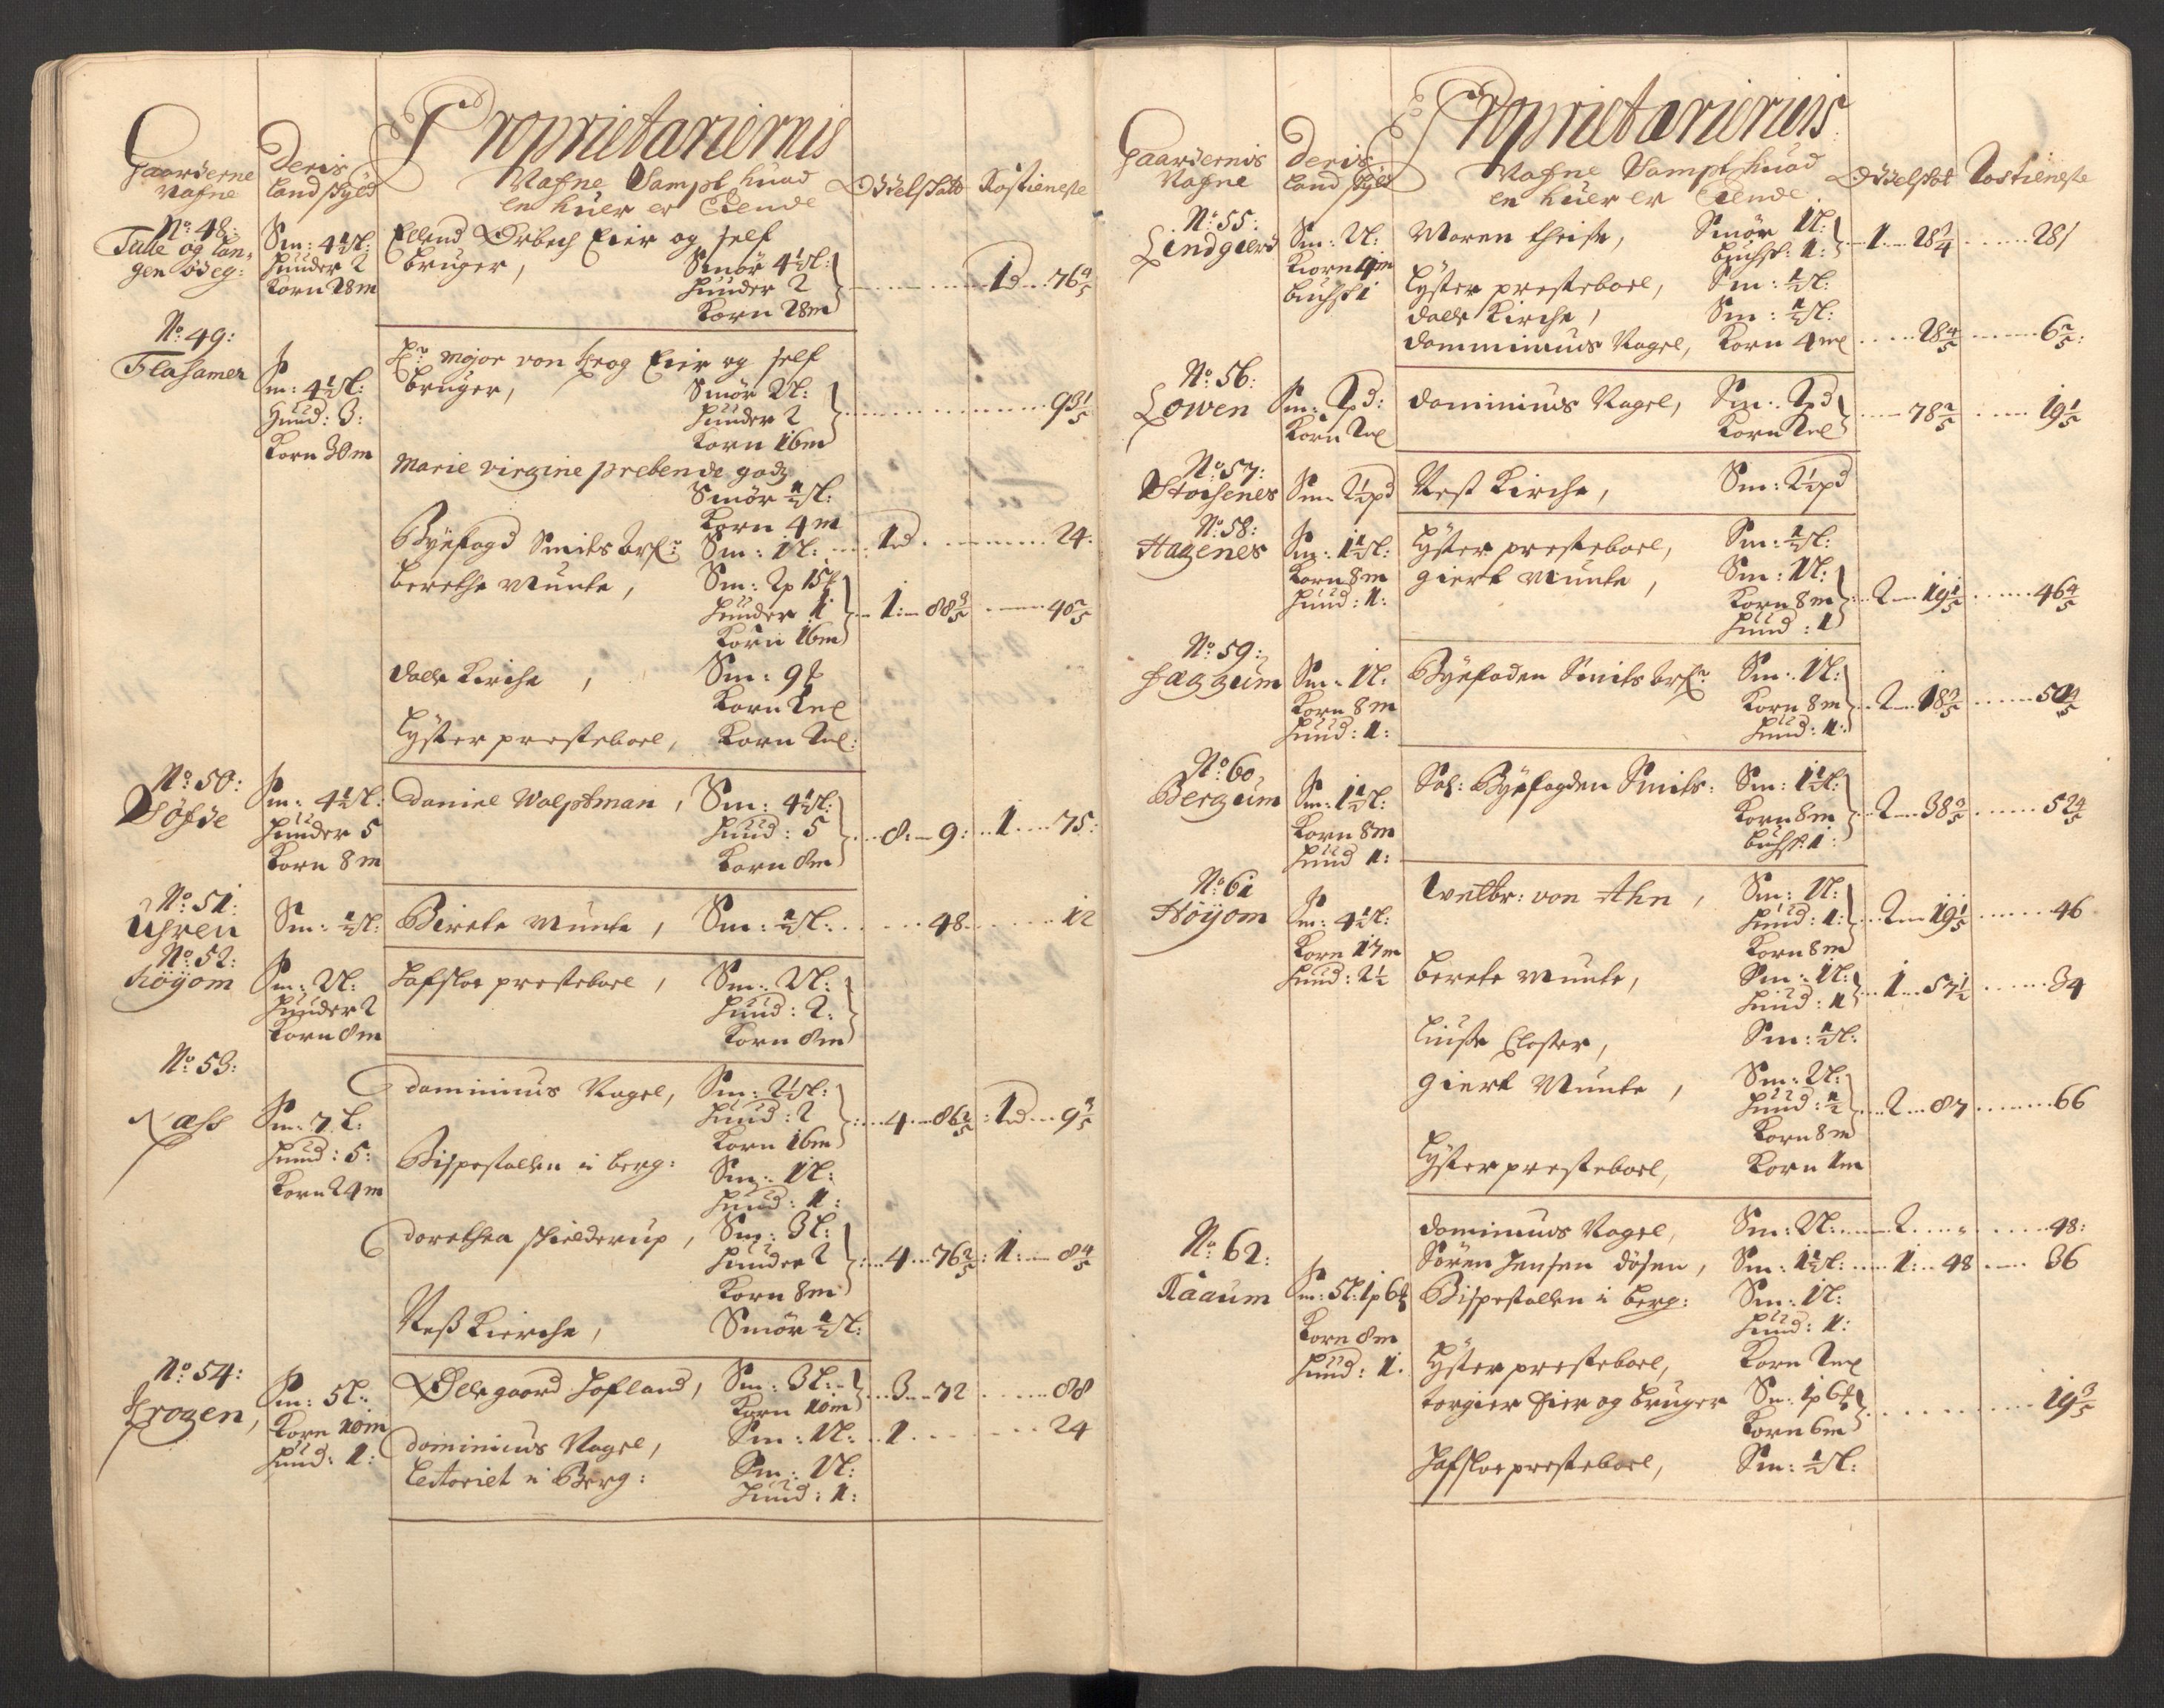 Proprietariernis
Gaarderne Nafne
Deris Landskyld
Nafne Sampt huad en huer er Eiende
Odelskatt
Rostieneste
No: 48:
Tulle og Lan-
gen ødeg:
Sm: 4½ l:
Huuder 2
Korn 28 m
Ellend Ørbech Eier og self
bruger,
Smør 4½ l:
Huuder 2
Korn 28 m
1 d 76 4/5
No: 49:
Flahamer
Sm: 4½ l:
Huud: 3:
Korn 30 m
Hr: Major von Krog Eier og self
bruger,
Smør 2 l:
Huuder 2
Korn 16 m
93 1/5
Marie virgine prebende godz
Smør ½ l:
Korn 4 m
Byefogd Smits
Sm: 1 l:
1 d
24:
Berethe Munte,
Sm: 2 p 15
Huuder 1
Korn 16 m
1: 88 3/5
40 2/5
Dalle Kirche,
Sm: 9
Korn 2 ml
Lyster presteboel,
Korn 2 ml:
No: 50:
Døsde
Sm: 4½ l:
Huuder 5
Korn 8 m
Daniel Wolptman,
Sm: 4½ l:
Huud: 5
Korn 8 m
8: 9:
1 75:
No: 51:
Uhren
Sm: ½ l:
Birete Munte,
Sm: ½ l:
48
12
No: 52:
Høyom
Sm: 2 l:
Huuder 2
Korn 8 m
Hafsloe presteboel,
Sm: 2 l:
Huud: 2:
Korn 8 m
No: 53:
Næss
Sm: 7 l:
Huud: 5:
Korn 24 m
Dominicus Nagel,
Sm: 2½ l:
Huud: 2
Korn 16 m
4 86 2/5
1 d 9 3/5
Bispestollen i Berg:
Sm: 1 l:
Huud: 1:
Dorethea Schielderup,
Sm: 3 l:
Huuder 2
Korn 8 m
4 76 2/5
1: 8 4/5
Neß Kierche,
Smør ½ l:
No: 54:
Krogen,
Sm: 5 l:
Korn 10 m
Huud: 1:
Øllegaard Hofland,
Sm: 3 l:
Korn 10 m
3 72
88
Dominicus Nagel,
Sm: 1 l:
1
24
Lectoriet i Berg:
Sm: 1 l:
Huud: 1:
Proprietariernis
Gaardernis Nafne
Deris Land skyld
Nafne Sampt huad en huer er Eiende
Odelskat
Rostieneste
No: 55:
Lindgierd
Sm: 2 l:
Kiorn 4 m
Buchsk 1
Maren Theise,
Smør 1 l:
Buchsk: 1:
1 28 3/4
28
Lyster presteboel,
Sm: ½ l:
Dalle Kirche,
Sm: ½ l:
Domminicus Nagel,
Korn 4 ml
28 4/5
6 2/5:
No: 56:
Lowen
Sm: 2 pd:
Korn 2 ml
Dominicus Nagel,
Sm: 2 pd
Korn 2 ml
78 2/5
19 1/5
No: 57:
Stochenes
Sm: 2½ pd
Nest Kirche,
Sm: 2½ pd
No: 58:
Hagenes
Sm: 1½ l:
Korn 8 m
Huud: 1:
Lyster presteboel,
Sm: ½ l:
Giert Munte,
Sm: 1 l:
Korn 8 m
Huud: 1
2 19 1/5
46 4/5
No: 59:
Fæggum
Sm: 1 l:
Korn 8 m
Huud: 1:
Byefoden Smits
Sm: 1 l:
Korn 8 m
Huud: 1:
2 18 3/5
50 4/5
No: 60,
Bergum
Sm: 1½ l:
Korn 8 m
Huud 1:
Sal: Byefogden Smits:
Sm: 1½ l:
Korn 8 m
Buchsk: 1:
2 38 3/5
52 4/5
No: 61
Høyom
Sm: 4½ l:
Korn 17 m
Huud: 2½
Welbr: von Ahn,
Sm: 1 l:
Huud: 1:
Korn 8 m
2 19 1/5
46
Berete Munte,
Sm: 1 l:
Huud: 1
1 57 1/2
34
Liuse Closter,
Sm: ½ l:
Giert Munte,
Sm: 2 l:
Huud: ½
Korn 8 m
2 87
66
Lyster presteboel,
Korn 1 m
No: 62:
Raaum
Sm: 5 l: 1 p 6
Korn 8 m
Huud: 1.
Dominicus Nagel,
Sm: 2 l:
2
48:
Søren Jensen Døsen,
Sm: 1½ l:
1: 48
36
Bispestollen i Berg:
Sm: 1 l:
Huud: 1:
Lyster presteboel,
Korn 2 ml
Torgier Eier og bruger
Sm: 1 p 6
Korn 6 m
19 3/5
Hafsloe presteboel,
Sm: ½ l: